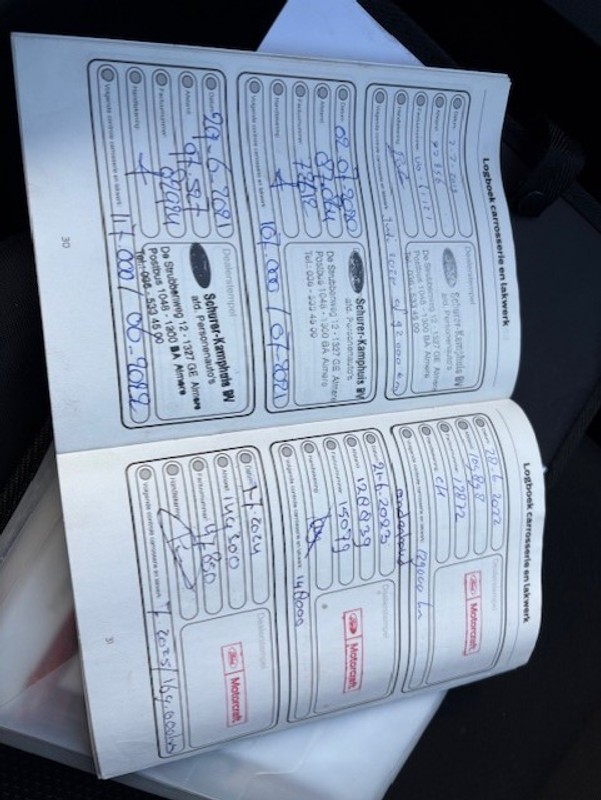 Logboek carrosserie en lakwerk
Datum
Afstand
Factuurnummer
Handtekening
Volgende controle carrosserie en lakwerk
Dealerstempel
Schurer-Kamphuis BV
afd. Personenauto's
De Strubbenweg 12 - 1327 GE Almere
Postbus 1048 - 1300 BA Almere
Tel.: 036 - 533 45 00
Datum 02-07-2020
Afstand 87.084
Factuurnummer
Handtekening
Volgende controle carrosserie en lakwerk 107.000 / 07-2021
Dealerstempel
Ford
Schurer-Kamphuis BV
afd. Personenauto's
De Strubbenweg 12 - 1327 GE Almere
Postbus 1048 - 1300 BA Almere
Tel.: 036 - 533 45 00
Datum 29-6-2021
Afstand 97.527
Factuurnummer 82084
Handtekening
Volgende controle carrosserie en lakwerk 117.000 / 06-2022
Dealerstempel
Ford
Schurer-Kamphuis BV
afd. Personenauto's
De Strubbenweg 12 - 1327 GE Almere
Postbus 1048 - 1300 BA Almere
Tel.: 036 - 533 45 00
30
Logboek carrosserie en lakwerk
Datum 28-6-2022
Afstand
Factuurnummer 12872
Handtekening
Volgende controle carrosserie en lakwerk
Dealerstempel
Ford Motorcraft
onderhoud
Datum 21-6-2023
Afstand 128839
Factuurnummer 15079
Handtekening
Volgende controle carrosserie en lakwerk 148000
Dealerstempel
Ford Motorcraft
Datum 1-7-2024
Afstand 144300
Factuurnummer
Handtekening
Volgende controle carrosserie en lakwerk 7-2025/164.000km
Dealerstempel
Ford Motorcraft
31